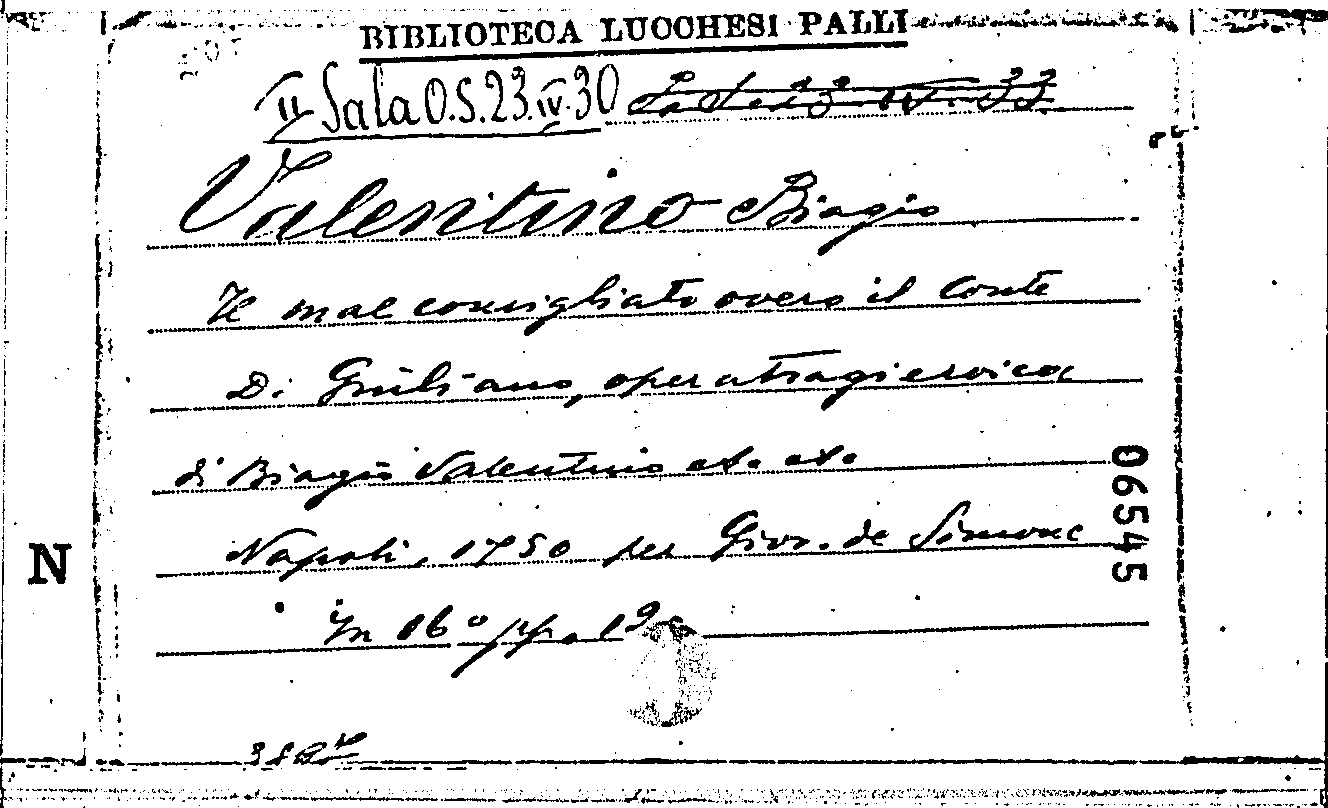 BIBLIOTECA LUCCHESI PALLI
II Sala O.S.23.IV.30
Valentino Biagio
Il mal consigliato overo il Conte
Di Giuliano, opera tragieroica
di Biagio Valentino et. et.
Napoli, 1750 per Giov. de Simone
In 16° pp.
N
06545